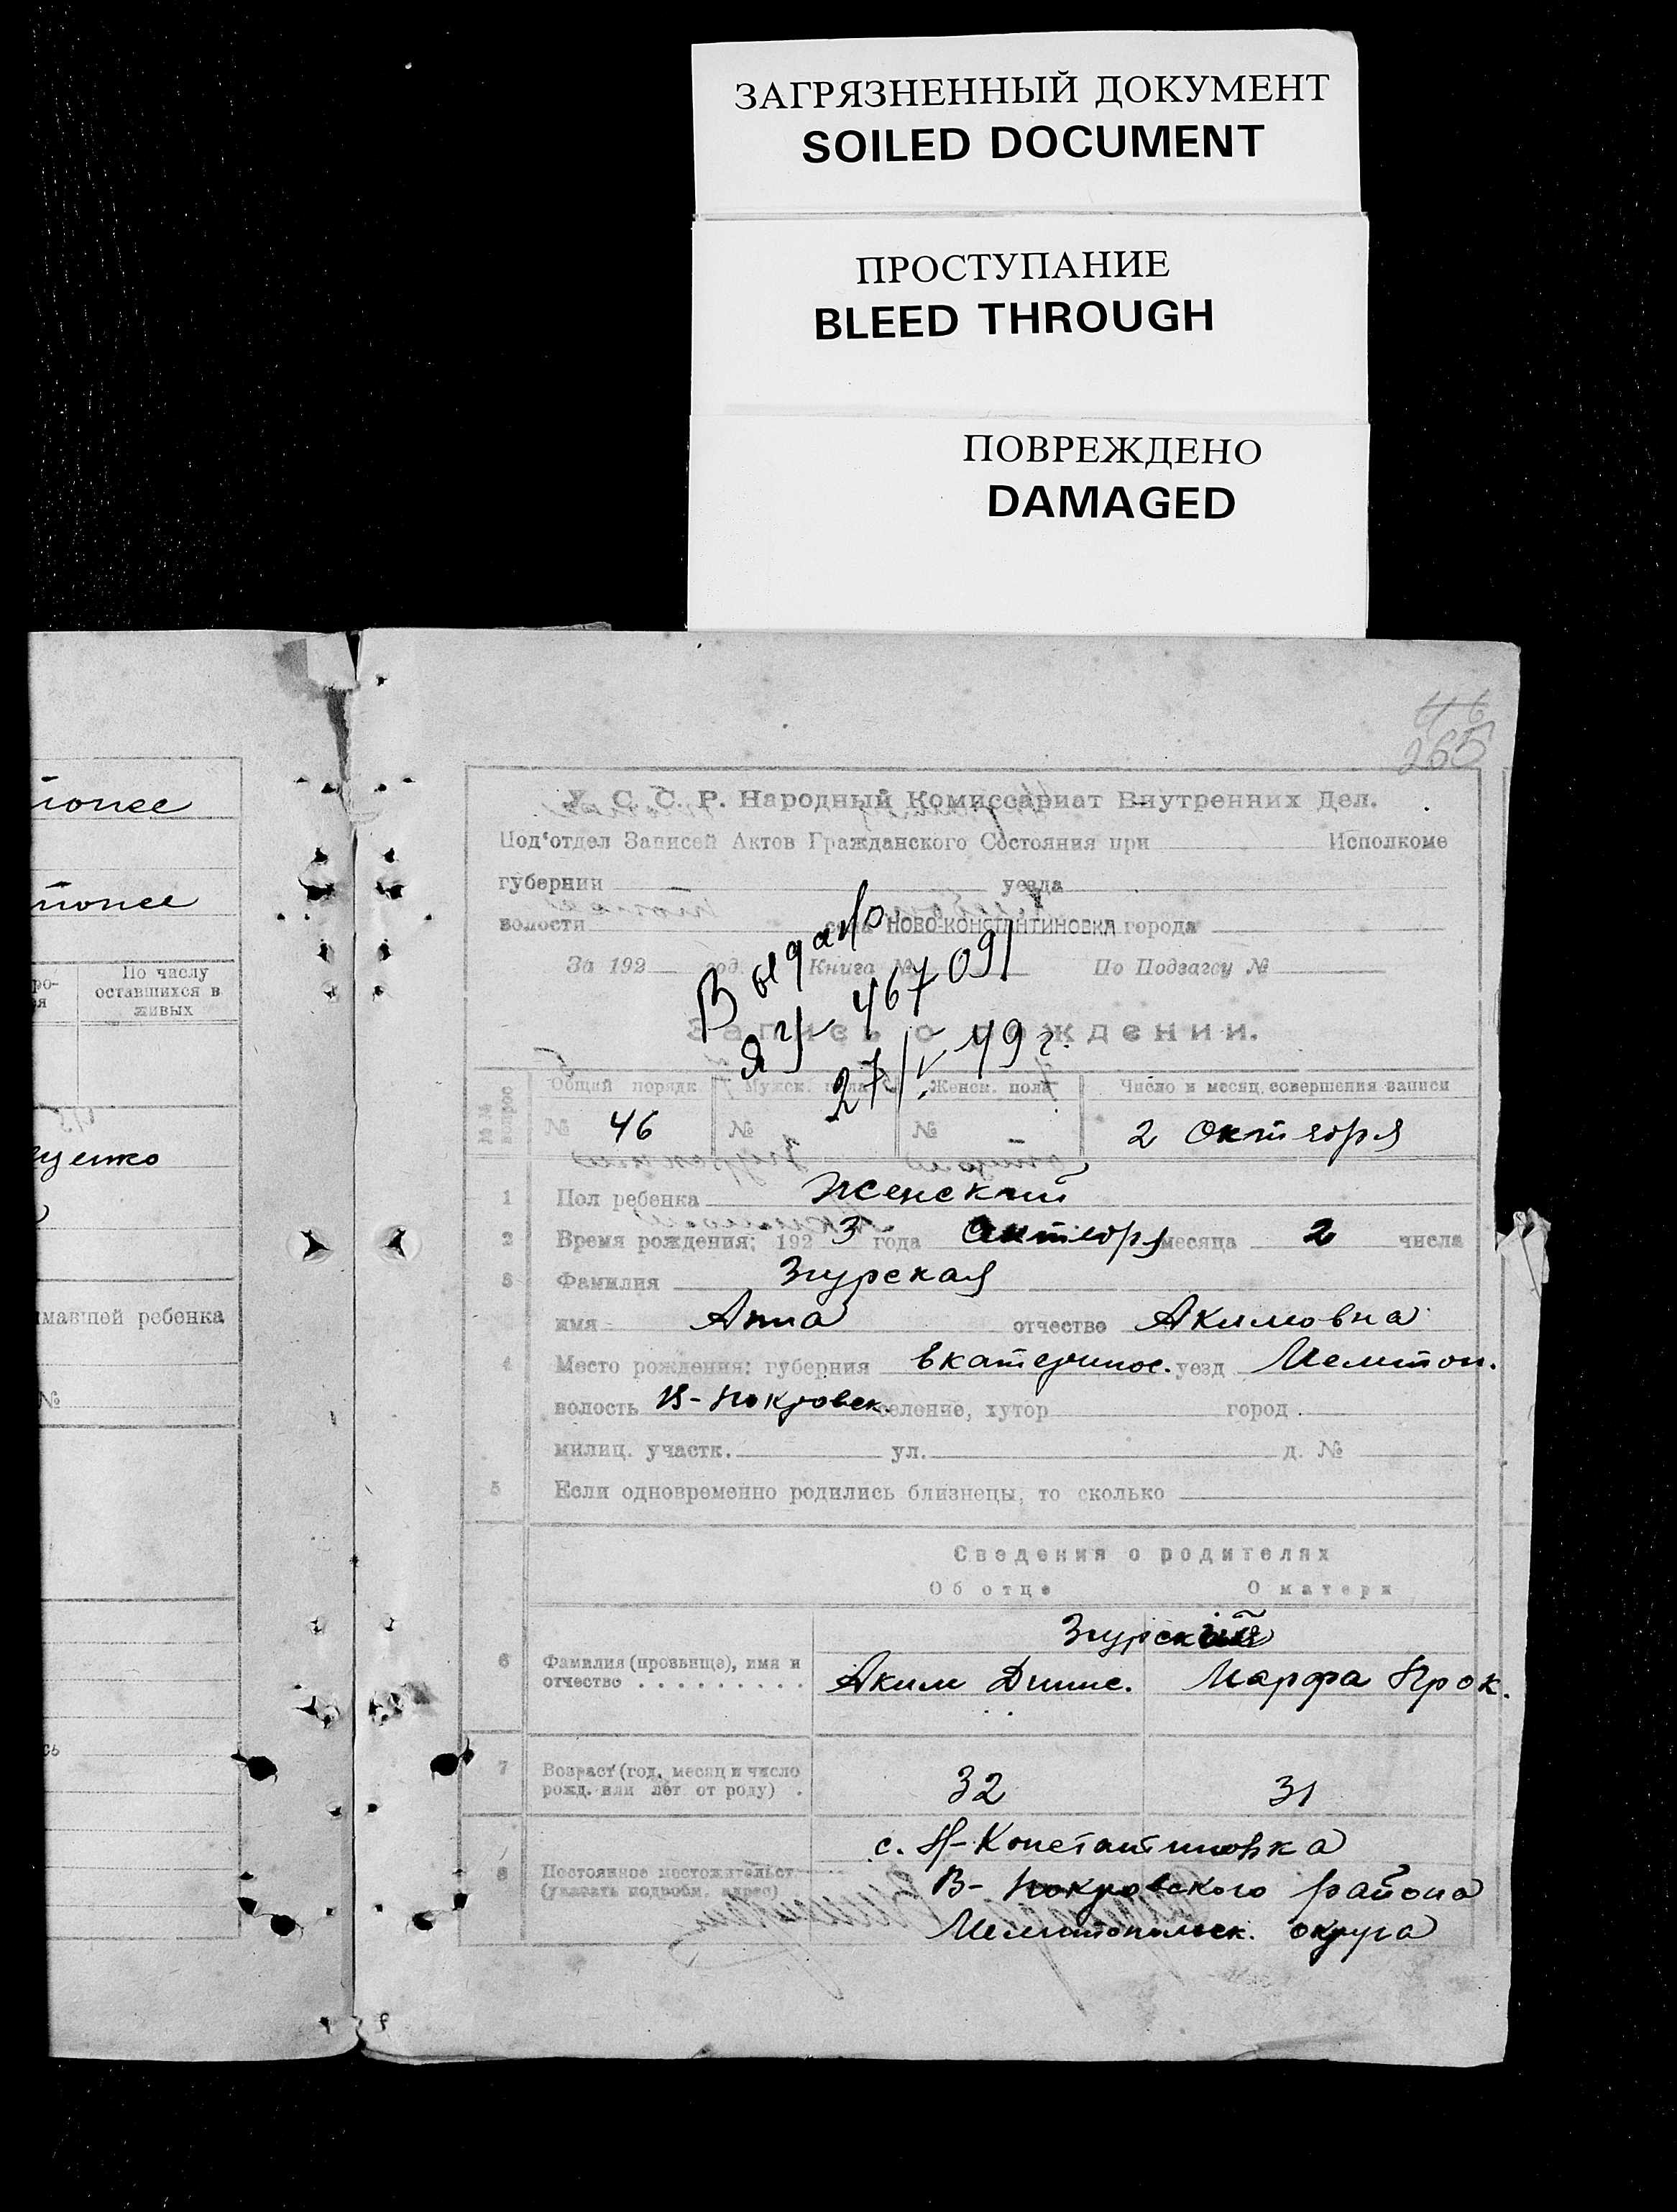 ЗАГРЯЗНЕННЫЙ ДОКУМЕНТ
SOILED DOCUMENT
ПРОСТУПАНИЕ
BLEED THROUGH
ПОВРЕЖДЕНО
DAMAGED
По числу
оставшихся в
живых
имавшей ребенка
№
46
265
У. С. С. Р. Народный Комиссариат Внутренних Дел.
Под'отдел Записей Актов Гражданского Состояния при Исполкоме
губернии уезда
волости села НОВО-КОНСТАНТИНОВКА города
За 192 год. Книга № По Подзагсу №
Выдано
467091
27/V-49 г.
Запись о рождении.
№№ вопрос
Общий порядк Мужск. пола Женск. пола Число и месяц совершения записи
№ 46 № № 2 Октября
1 Пол ребенка Женский
2 Время рождения: 192 3 года Октября месяца 2 числа
3 Фамилия Згурская
имя Анна отчество Акимовна
4 Место рождения: губерния Екатеринос. уезд Мелитоп.
волость В-Покровск. селение, хутор город
милиц. участк. ул. д. №
5 Если одновременно родились близнецы, то сколько
Сведения о родителях
Об отце О матери
Згурский
6 Фамилия (прозвище), имя и
отчество . . . . . . . . . Аким Дмит. Марфа Прок.
7 Возраст (год, месяц и число
рожд. или лет от роду) . 32 31
с. Н-Константиновка
8 Постоянное местожительст.
(указать подробн. адрес) В-Покровского района
Мелитопольск. округа